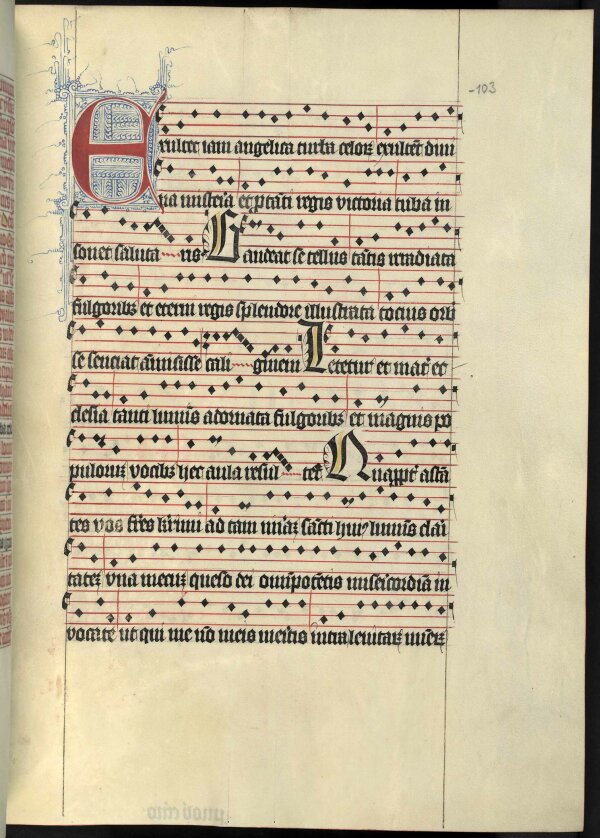 -103
Exultet iam angelica turba celoꝝ exultēt diui
na misteia et ꝓ tāti regis victoria tuba in
sonet saluta ris Gaudeat se tellus tātis irradiata
fulgoribꝫ et eterni regis splendore illustrata tocius orbi
se senciat āmisisse cali ginem Letetur et mat̉ ec
clesia tanti luminis adornata fulgoribꝫ et magnis po
puloruꝫ vocibꝫ hec aula resul tet Quapp̄t̉ astā
tes vos fr̄es kr̄imi ad tam mirāꝫ sācti huiꝰ luminis clari
tateꝫ vna mecuꝫ queso dei om̄ipotētis misericordiā in
vocate ut qui me nō meis meritis intra leuitaꝝ numeꝝ